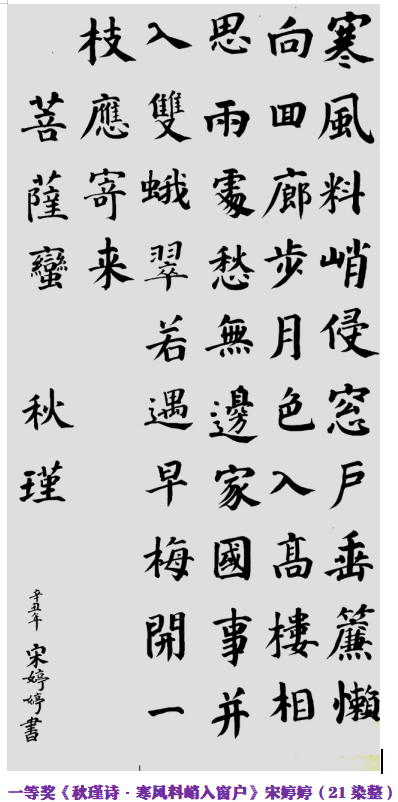 寒風料峭侵窓戶垂簾懶
向囬廊步月色入髙樓相
思兩處愁無邊家國事并
入雙蛾翠若遇早梅開一
枝應寄来
菩薩蠻 秋瑾
辛丑年 宋婷婷書
一等奖《秋瑾诗 · 寒风料峭入窗户》宋婷婷（21染整）